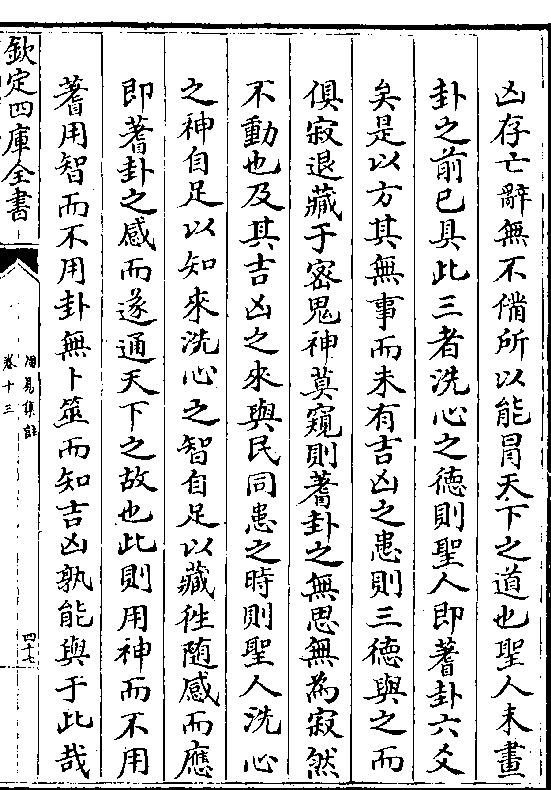 凶存亡辭無不備所以能冐天下之道也聖人未畫
卦之前已具此三者洗心之德則聖人即蓍卦六爻
矣是以方其無事而未有吉凶之患則三德與之而
俱寂退藏于密鬼神莫窺則蓍卦之無思無為寂然
不動也及其吉凶之來與民同患之時則聖人洗心
之神自足以知來洗心之智自足以藏徃隨感而應
即蓍卦之感而遂通天下之故也此則用神而不用
蓍用智而不用卦無卜筮而知吉凶孰能與于此哉
欽定四庫全書
周易集註
卷十三
四十七